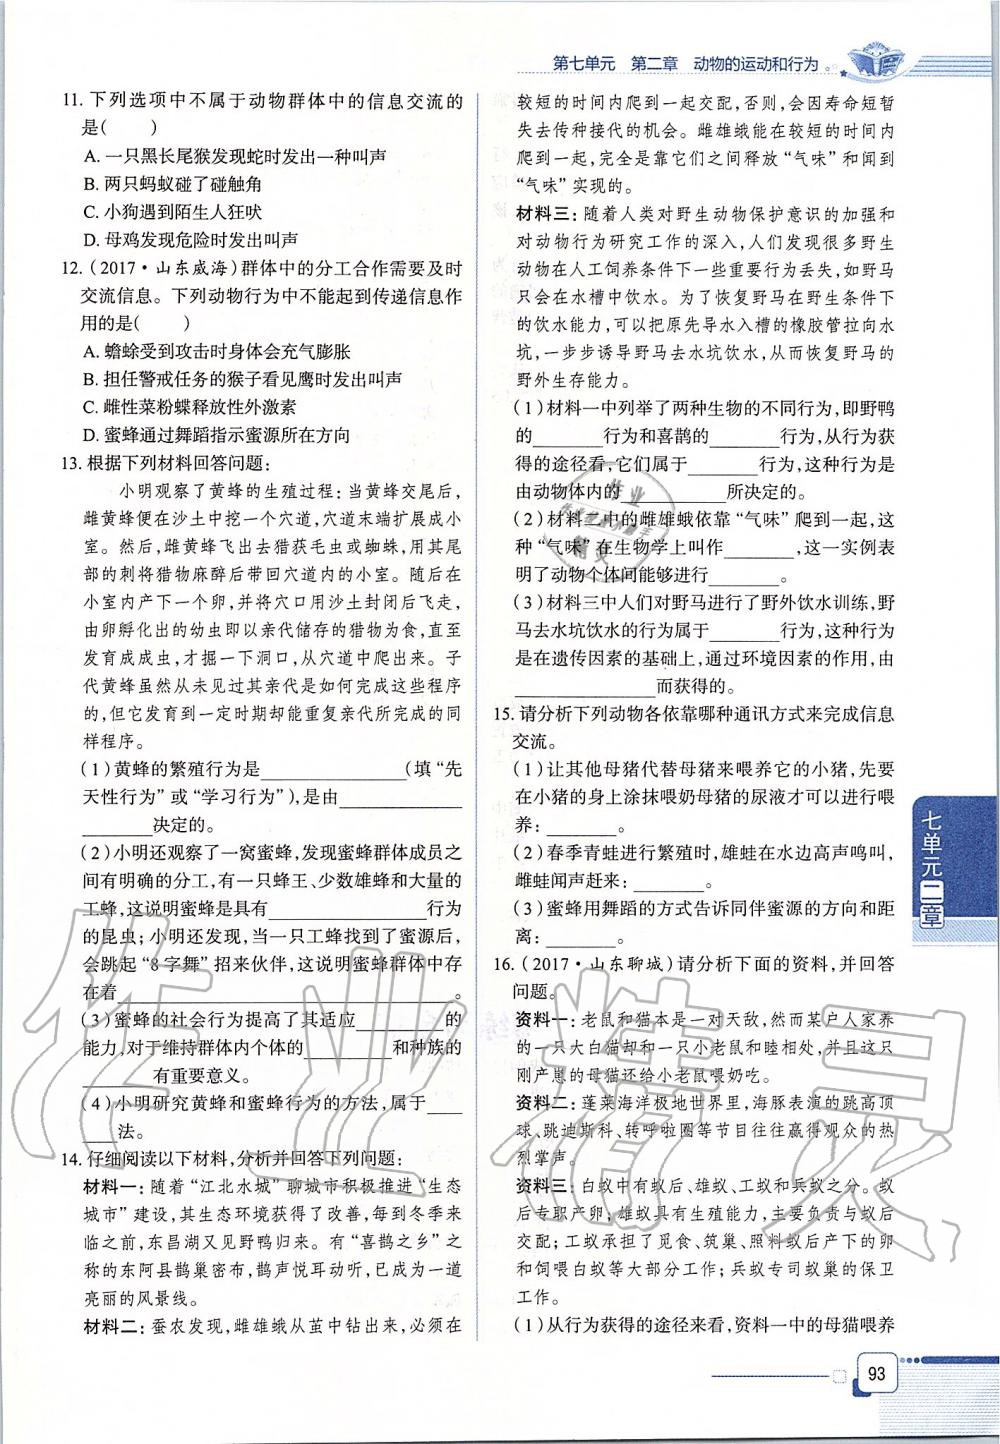 第七单元　第二章　动物的运动和行为
11. 下列选项中不属于动物群体中的信息交流的
是(　　)
A. 一只黑长尾猴发现蛇时发出一种叫声
B. 两只蚂蚁碰了碰触角
C. 小狗遇到陌生人狂吠
D. 母鸡发现危险时发出叫声
12. (2017·山东威海)群体中的分工合作需要及时
交流信息。下列动物行为中不能起到传递信息作
用的是(　　)
A. 蟾蜍受到攻击时身体会充气膨胀
B. 担任警戒任务的猴子看见鹰时发出叫声
C. 雌性菜粉蝶释放性外激素
D. 蜜蜂通过舞蹈指示蜜源所在方向
13. 根据下列材料回答问题：
小明观察了黄蜂的生殖过程：当黄蜂交尾后，
雌黄蜂便在沙土中挖一个穴道，穴道末端扩展成小
室。然后，雌黄蜂飞出去猎获毛虫或蜘蛛，用其尾
部的刺将猎物麻醉后带回穴道内的小室。随后在
小室内产下一个卵，并将穴口用沙土封闭后飞走，
由卵孵化出的幼虫即以亲代储存的猎物为食，直至
发育成成虫，才掘一下洞口，从穴道中爬出来。子
代黄蜂虽然从未见过其亲代是如何完成这些程序
的，但它发育到一定时期却能重复亲代所完成的同
样程序。
(1)黄蜂的繁殖行为是______(填“先
天性行为”或“学习行为”)，是由______
______决定的。
(2)小明还观察了一窝蜜蜂，发现蜜蜂群体成员之
间有明确的分工，有一只蜂王、少数雄蜂和大量的
工蜂，这说明蜜蜂是具有______行为
的昆虫；小明还发现，当一只工蜂找到了蜜源后，
会跳起“8字舞”招来伙伴，这说明蜜蜂群体中存
在着______。
(3)蜜蜂的社会行为提高了其适应______的
能力，对于维持群体内个体的______和种族的
______有重要意义。
(4)小明研究黄蜂和蜜蜂行为的方法，属于____
____法。
14. 仔细阅读以下材料，分析并回答下列问题：
材料一：随着“江北水城”聊城市积极推进“生态
城市”建设，其生态环境获得了改善，每到冬季来
临之前，东昌湖又见野鸭归来。有“喜鹊之乡”之
称的东阿县鹊巢密布，鹊声悦耳动听，已成为一道
亮丽的风景线。
材料二：蚕农发现，雌雄蛾从茧中钻出来，必须在
较短的时间内爬到一起交配，否则，会因寿命短暂
失去传种接代的机会。雌雄蛾能在较短的时间内
爬到一起，完全是靠它们之间释放“气味”和闻到
“气味”实现的。
材料三：随着人类对野生动物保护意识的加强和
对动物行为研究工作的深入，人们发现很多野生
动物在人工饲养条件下一些重要行为丢失，如野马
只会在水槽中饮水。为了恢复野马在野生条件下
的饮水能力，可以把原先导水入槽的橡胶管拉向水
坑，一步步诱导野马去水坑饮水，从而恢复野马的
野外生存能力。
(1)材料一中列举了两种生物的不同行为，即野鸭
的______行为和喜鹊的______行为，从行为获
得的途径看，它们属于______行为，这种行为是
由动物体内的______所决定的。
(2)材料二中的雌雄蛾依靠“气味”爬到一起，这
种“气味”在生物学上叫作______，这一实例表
明了动物个体间能够进行______。
(3)材料三中人们对野马进行了野外饮水训练，野
马去水坑饮水的行为属于______，这种行为
是在遗传因素的基础上，通过环境因素的作用，由
______而获得的。
15. 请分析下列动物各依靠哪种通讯方式来完成信息
交流。
(1)让其他母猪代替母猪来喂养它的小猪，先要
在小猪的身上涂抹喂奶母猪的尿液才可以进行喂
养：______。
(2)春季青蛙进行繁殖时，雄蛙在水边高声鸣叫，
雌蛙闻声赶来：______。
(3)蜜蜂用舞蹈的方式告诉同伴蜜源的方向和距
离：______。
16. (2017·山东聊城)请分析下面的资料，并回答
问题。
资料一：老鼠和猫本是一对天敌，然而某户人家养
的一只大白猫却和一只小老鼠和睦相处，并且这只
刚产崽的母猫还给小老鼠喂奶吃。
资料二：蓬莱海洋极地世界里，海豚表演的跳高顶
球、跳迪斯科、转呼啦圈等节目往往赢得观众的热
烈掌声。
资料三：白蚁中有蚁后、雄蚁、工蚁和兵蚁之分。蚁
后专职产卵；雄蚁具有生殖能力，主要负责与蚁后
交配；工蚁承担了觅食、筑巢、照料蚁后产下的卵
和饲喂白蚁等大部分工作；兵蚁专司蚁巢的保卫
工作。
(1)从行为获得的途径来看，资料一中的母猫喂养
七单元二章
93
作业精灵